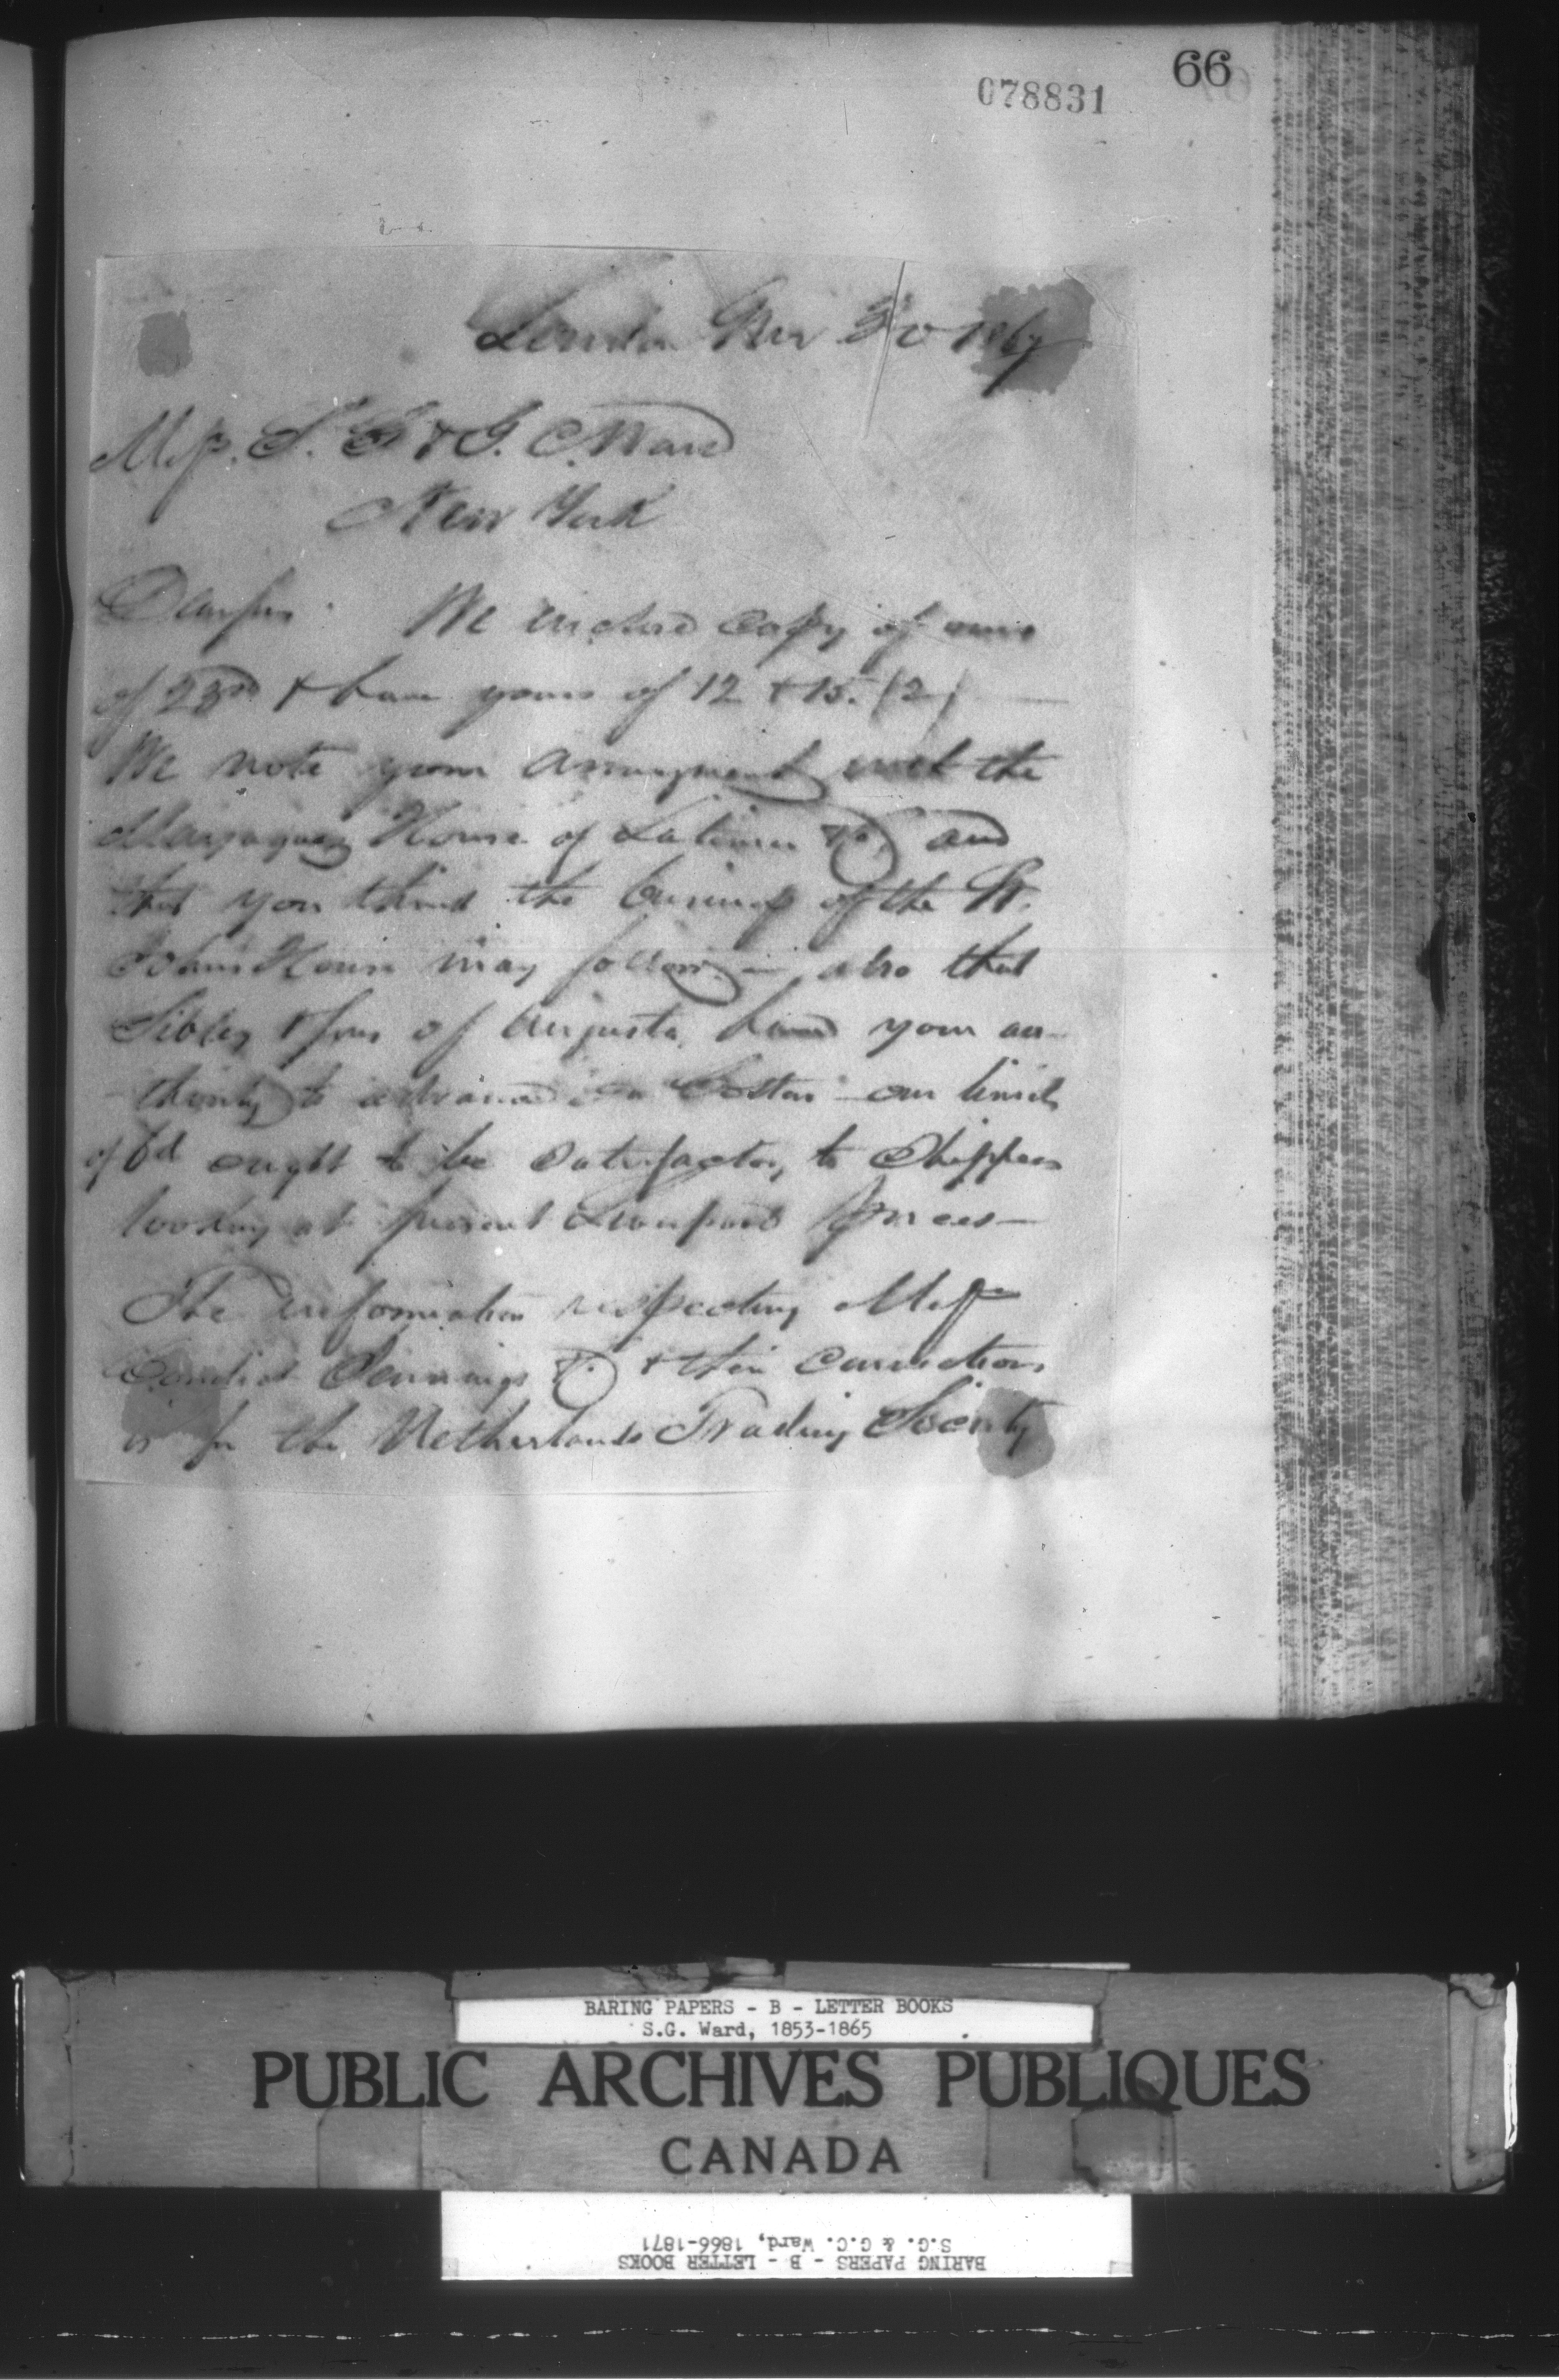 66
078831
London Nov 30 1867
Mess. S. G & G. C. Ward
New York
Dear Sirs We enclose copy of ours
of 23rd & have yours of 12 & 15. (2)
We note your arrangement with the
Mayaguez House of Latimer & Co, and
that you think the business of the St.
Johns House may follow — also that
Sibley & Sons of Augusta, have your au-
-thority to advance on Cotton — our limit
of 6d ought to be satisfactory to Shippers
looking at present Liverpool prices —
The information respecting Mess
Jennings & Co & their connections
is for the Netherlands Trading Society
BARING PAPERS - B - LETTER BOOKS
S.G. Ward, 1853-1865
PUBLIC ARCHIVES PUBLIQUES
CANADA
BARING PAPERS - B - LETTER BOOKS
S.G. & G.C. Ward, 1866-1871